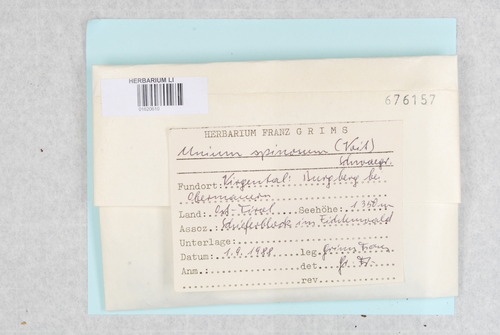 HERBARIUM LI
676157
HERBARIUM FRANZ GRIMS
Mnium spinosum (Voit)
Schwaegr.
Fundort: Virgental: Burgberg bei
Obermauern
Land: Ost-Tirol Seehöhe: 1350 m
Assoz. Schieferblock im Fichtenwald
Unterlage:
Datum: 1.9.1988 leg. Grims Franz
Anm.: det. Gr. Fr.
rev.